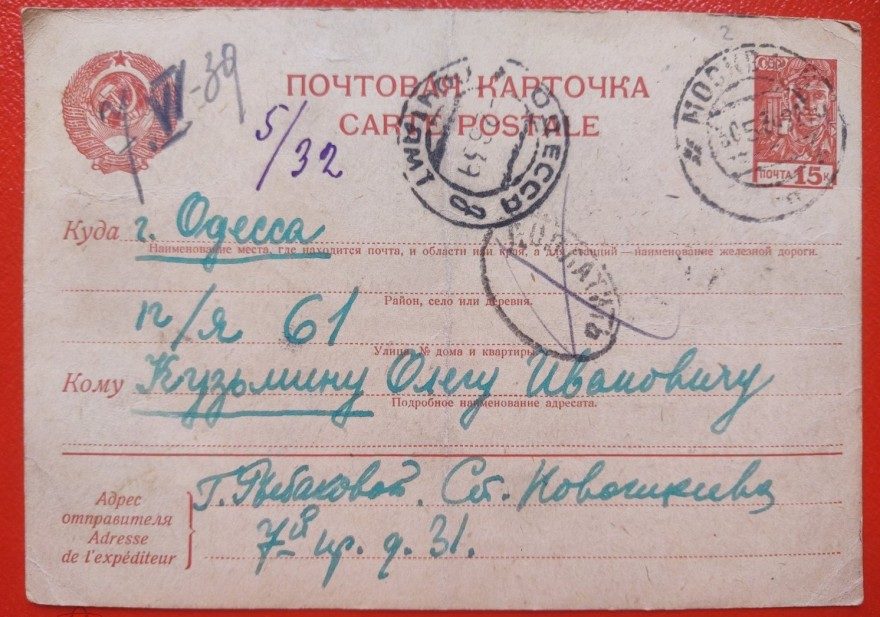 ПОЧТОВАЯ КАРТОЧКА
CARTE POSTALE
VI-39
5/32
ОДЕССА
39
МОСКВА
ПОЧТА 15 К
Куда г. Одесса
Наименование места, где находится почта, и области или края, а для станций — наименование железной дороги.
Район, село или деревня.
п/я 61
Улица, № дома и квартиры
Кому Кузьмину Олегу Ивановичу
Подробное наименование адресата.
ДОПЛАТИТЬ
Адрес
отправителя
Adresse
de l'expéditeur
Г. Рыбаковой. Ст. Новогиреево
7-й пр. д. 31.